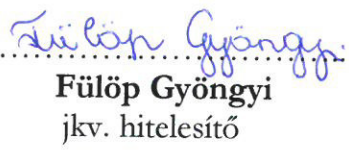 Fülöp Gyöngyi
Fülöp Gyöngyi
jkv. hitelesítő